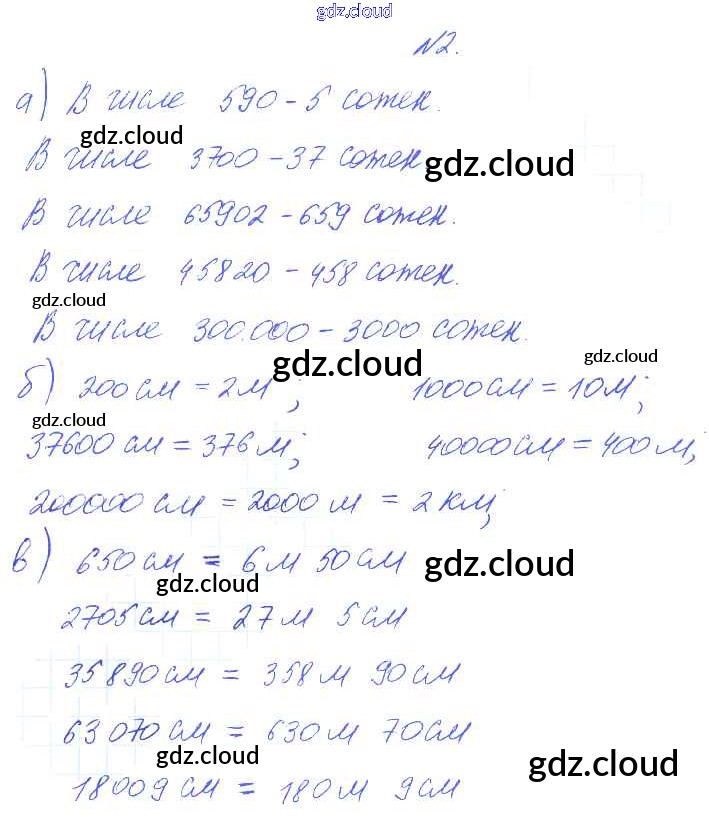 gdz.cloud
№2.
а) В числе 590 - 5 сотен.
gdz.cloud
В числе 3700 - 37 сотен
gdz.cloud
В числе 65902 - 659 сотен.
В числе 45820 - 458 сотен.
gdz.cloud
В числе 300.000 - 3000 сотен.
gdz.cloud
gdz.cloud
б) 200 см = 2 м; 1000 см = 10 м;
gdz.cloud
37600 см = 376 м; 40000 см = 400 м;
200000 см = 2000 м = 2 км;
в) 650 см = 6 м 50 см
gdz.cloud
gdz.cloud
2705 см = 27 м 5 см
35890 см = 358 м 90 см
63070 см = 630 м 70 см
gdz.cloud
gdz.cloud
18009 см = 180 м 9 см